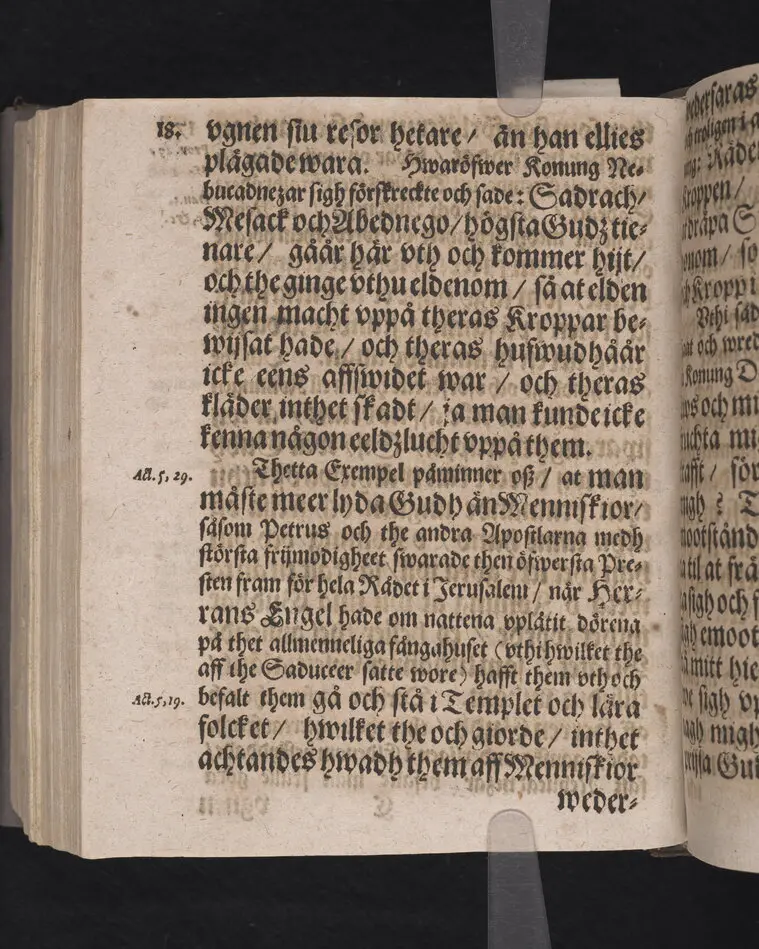 18. vgnen siu resor hetare / än han ellies
plägade wara. Hwaröfwer Konung Ne-
bucadnezar sigh förskreckte och sade: Sadrach/
Mesack och Abednego/ högsta Gudz tie-
nare / gåår här vth och kommer hijt/
och the ginge vthu eldenom / så at elden
ingen macht vppå theras Kroppar be-
wijsat hade / och theras hufwudhåår
icke eens affswidet war / och theras
kläder inthet skadt / ja man kunde icke
kenna någon eeldzlucht vppå them.
Act. 5, 29. Thetta Exempel påminner oß / at man
måste meer lyda Gudh än Menniskior/
såsom Petrus och the andra Apostlarna medh
största frijmodigheet swarade then öfwersta Pre-
sten fram för hela Rådet i Jerusalem / när Her-
rans Engel hade om nattena vplåtit dörena
på thet allmenneliga fångahuset (vthi hwilket the
aff the Saduceer satte wore) hafft them vth och
Act. 5, 19. befalt them gå och stå i Templet och lära
folcket / hwilket the och giorde / inthet
achtandes hwadh them aff Menniskior
weder-